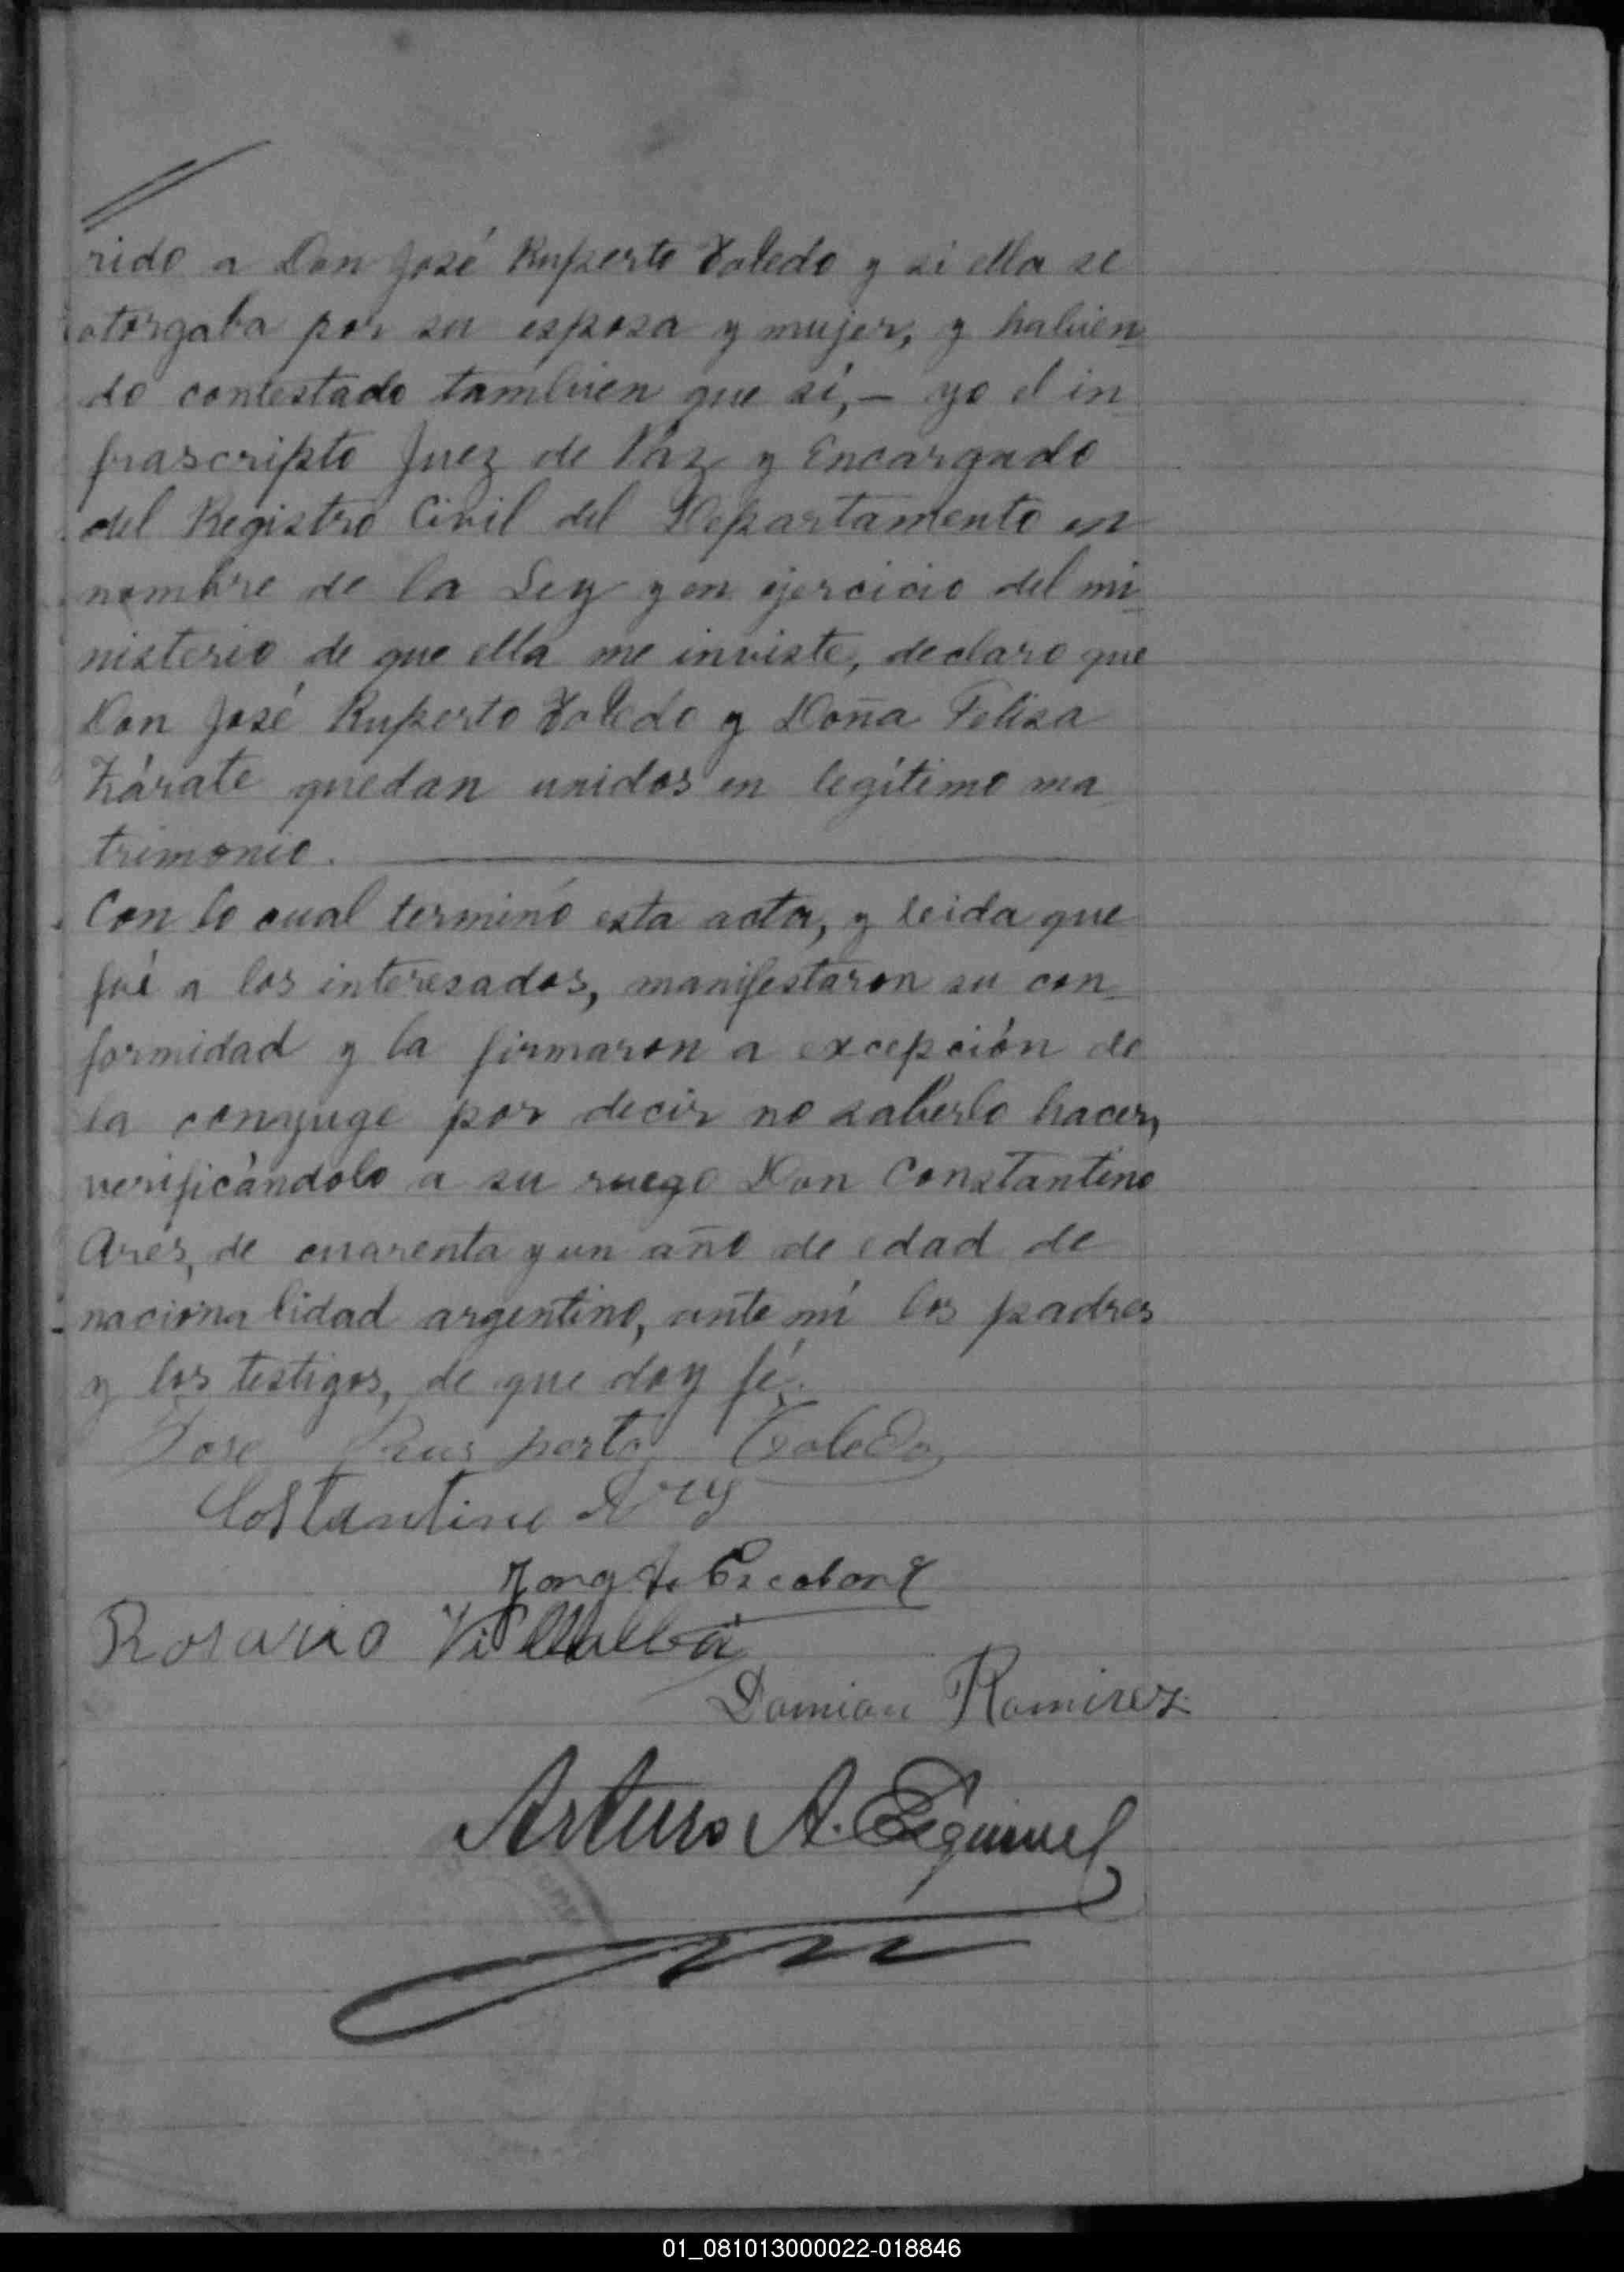 rido a Don José Ruperto Toledo y si ella se
otorgaba por su esposa y mujer, y habien
do contestado tambien que sí,— yo el in
frascripto Juez de Paz y Encargado
del Registro Civil del Departamento en
nombre de la Ley y en ejercicio del mi
nisterio de que ella me inviste, declaro que
Don José Ruperto Toledo y Doña Felisa
Zárate quedan unidos en legítimo ma
trimonio.
Con lo cual terminó esta acta, y leida que
fué a los interesados, manifestaron su con_
formidad y la firmaron a excepción de
la conyuge por decir no saberlo hacer,
verificándolo a su ruego Don Constantino
Arés, de cuarenta y un año de edad de
nacionalidad argentino, ante mí los padres
y los testigos, de que doy fé.
Jose Rus perto Toledo
Costantino
Rosario Villalba
Damian Ramirez
Arturo A.
01_081013000022-018846